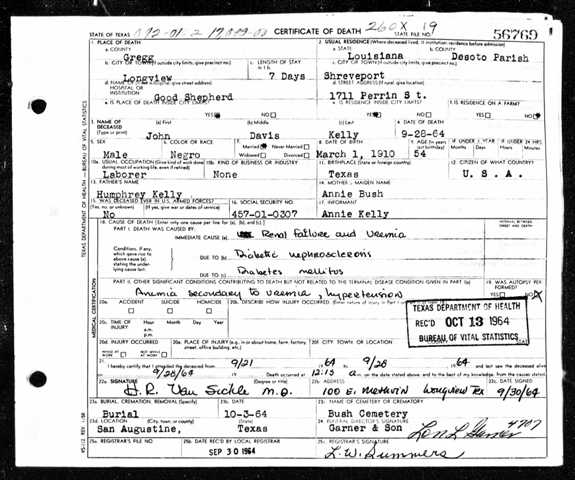 STATE OF TEXAS
CERTIFICATE OF DEATH
STATE FILE NO. 56769
1. PLACE OF DEATH
2. USUAL RESIDENCE (Where deceased lived. If institution: residence before admission)
a. COUNTY Gregg
a. STATE Louisiana
b. COUNTY Desoto Parish
b. CITY OR TOWN (If outside city limits, give precinct no.) Longview
c. LENGTH OF STAY in 1 b 7 Days
c. CITY OR TOWN (If outside city limits, give precinct no.) Shreveport
d. NAME OF (If not in hospital, give street address) HOSPITAL OR INSTITUTION Good Shepherd
d. STREET ADDRESS (If rural, give location) 1711 Perrin St.
e. IS PLACE OF DEATH INSIDE CITY LIMITS? YES NO
e. IS RESIDENCE INSIDE CITY LIMITS? YES NO
f. IS RESIDENCE ON A FARM? YES NO
3. NAME OF DECEASED (Type or print) (a) First (b) Middle (c) Last
John Davis Kelly
4. DATE OF DEATH 9-28-64
5. SEX Male
6. COLOR OR RACE Negro
7. Married Never Married Widowed Divorced
8. DATE OF BIRTH March 1, 1910
9. AGE (In years last birthday) 54
IF UNDER 1 YEAR Months Days
IF UNDER 24 HRS Hours Minutes
10a. USUAL OCCUPATION (Give kind of work done during most of working life, even if retired) Laborer
10b. KIND OF BUSINESS OR INDUSTRY None
11. BIRTHPLACE (State or foreign country) Texas
12. CITIZEN OF WHAT COUNTRY? U. S. A.
13. FATHER'S NAME Humphrey Kelly
14. MOTHER'S MAIDEN NAME Annie Bush
15. WAS DECEASED EVER IN U.S. ARMED FORCES? (Yes, no, or unknown) (If yes, give war or dates of service) No
16. SOCIAL SECURITY NO. 457-01-0307
17. INFORMANT Annie Kelly
18. CAUSE OF DEATH (Enter only one cause per line for (a), (b), and (c).)
INTERVAL BETWEEN ONSET AND DEATH
PART I. DEATH WAS CAUSED BY:
IMMEDIATE CAUSE (a) Renal Failure and Uremia
Conditions, if any, which gave rise to above cause (a) stating the underlying cause last.
DUE TO (b) Diabetic nephrosclerosis
DUE TO (c) Diabetes mellitus
PART II. OTHER SIGNIFICANT CONDITIONS CONTRIBUTING TO DEATH BUT NOT RELATED TO THE TERMINAL DISEASE CONDITION GIVEN IN PART I (a)
Anemia secondary to Uremia, hypertension
19. WAS AUTOPSY PERFORMED? YES NO X
20a. ACCIDENT SUICIDE HOMICIDE
20b. DESCRIBE HOW INJURY OCCURRED
20c. TIME OF INJURY Hour Month Day Year
a.m.
p.m.
TEXAS DEPARTMENT OF HEALTH
REC'D OCT 13 1964
BUREAU OF VITAL STATISTICS
20d. INJURY OCCURRED WHILE AT WORK NOT WHILE AT WORK
20e. PLACE OF INJURY (e.g., in or about home, farm, factory, street, office building, etc.)
20f. CITY, TOWN, OR LOCATION
21. I hereby certify that I attended the deceased from 9/21 64 9/28 64
9/28/64 Death occurred at 12:15 a. m. on the date stated above, and to the best of my knowledge, from the causes stated.
22a. SIGNATURE H.R. Van Sickle M.D. (Degree or title)
22b. ADDRESS 100 E. Methvin Longview Tex
22c. DATE SIGNED 9/30/64
23a. BURIAL, CREMATION, REMOVAL (Specify) Burial
23b. DATE 10-3-64
23c. NAME OF CEMETERY OR CREMATORY Bush Cemetery
23d. LOCATION (City, town, or county) (State) San Augustine, Texas
24. FUNERAL DIRECTOR'S SIGNATURE Garner & Son
25a. REGISTRAR'S FILE NO.
25b. DATE REC'D BY LOCAL REGISTRAR SEP 30 1964
25c. REGISTRAR'S SIGNATURE L.W. Summers
TEXAS DEPARTMENT OF HEALTH — BUREAU OF VITAL STATISTICS
MEDICAL CERTIFICATION